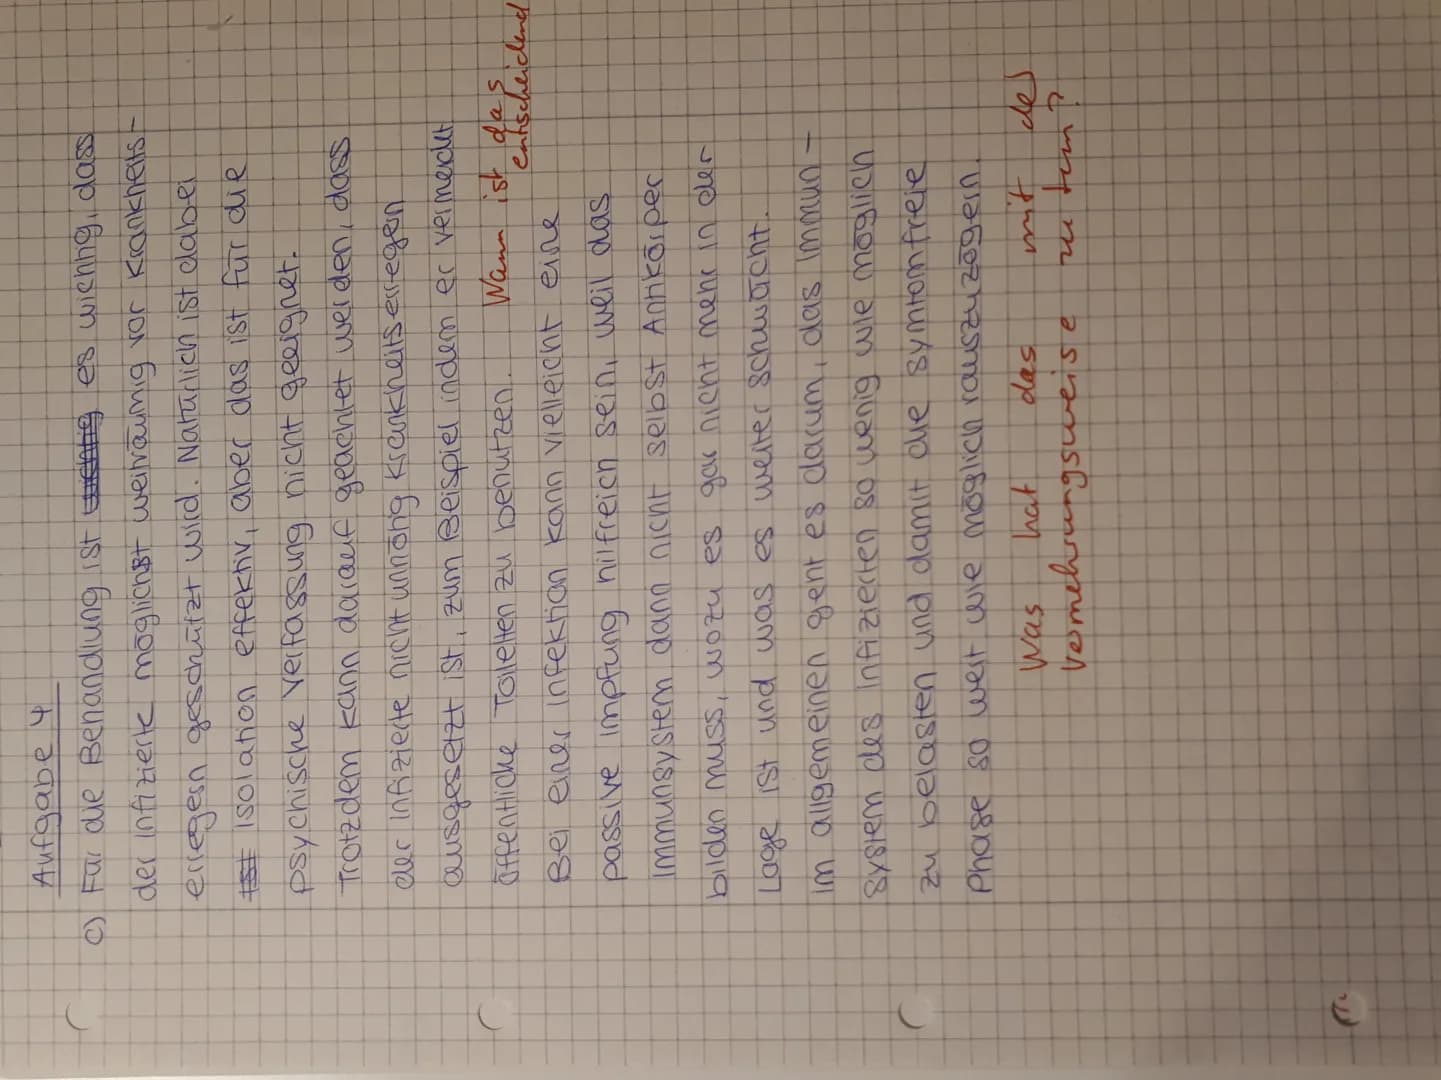 Aufgabe 4
c) Für die Behandlung ist es wichtig, dass
der Infizierte möglichst weiträumig vor Krankheits-
erregern geschützt wird. Natürlich ist dabei
Isolation effektiv, aber das ist für die
psychische Verfassung nicht geeignet.
Trotzdem kann darauf geachtet werden, dass
der Infizierte nicht unnötig Krankheitserregern
ausgesetzt ist, zum Beispiel indem er vermeidet
öffentliche Toiletten zu benutzen. Wann ist das
entscheidend
Bei einer Infektion kann vielleicht eine
passive Impfung hilfreich sein, weil das
Immunsystem dann nicht selbst Antikörper
bilden muss, wozu es gar nicht mehr in der
Lage ist und was es weiter schwächt.
Im allgemeinen geht es darum, das Immun-
system des Infizierten so wenig wie möglich
zu belasten und damit die symtomfreie
Phase so weit wie möglich rauszuzögern.
Was hat das mit der
Vermehrungsweise zu tun?